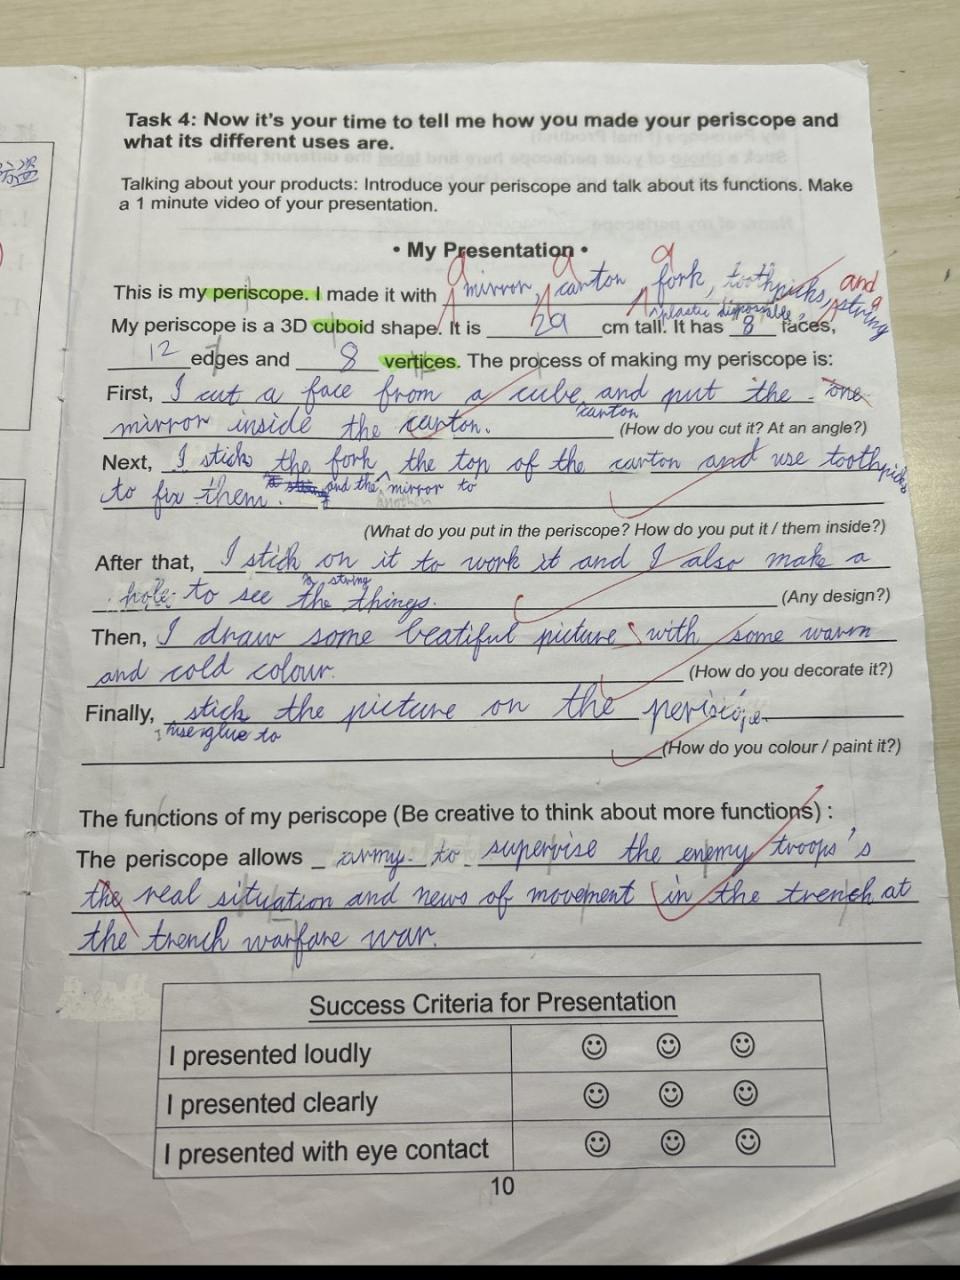 Task 4: Now it's your time to tell me how you made your periscope and
what its different uses are.
Talking about your products: Introduce your periscope and talk about its functions. Make
a 1 minute video of your presentation.
• My Presentation •
a a a and
This is my periscope. I made it with mirror, canton, fork, toothpicks, string
plastic disposable a
My periscope is a 3D cuboid shape. It is 29 cm tall. It has 8 faces,
12 edges and 8 vertices. The process of making my periscope is:
First, I cut a face from a cube and put the one
canton
mirror inside the canton. (How do you cut it? At an angle?)
Next, I stick the fork the top of the canton and use toothpicks
to fix them. and the mirror to
(What do you put in the periscope? How do you put it / them inside?)
After that, I stick on it to work it and I also make a
a string
hole to see the things. (Any design?)
Then, I draw some beatiful pictures with some warm
and cold colour. (How do you decorate it?)
Finally, stick the picture on the periscope.
I use glue to
(How do you colour / paint it?)
The functions of my periscope (Be creative to think about more functions) :
The periscope allows army to supervise the enemy troops's
the real situation and news of movement in the trench at
the trench warfare war.
Success Criteria for Presentation
I presented loudly
I presented clearly
I presented with eye contact
10